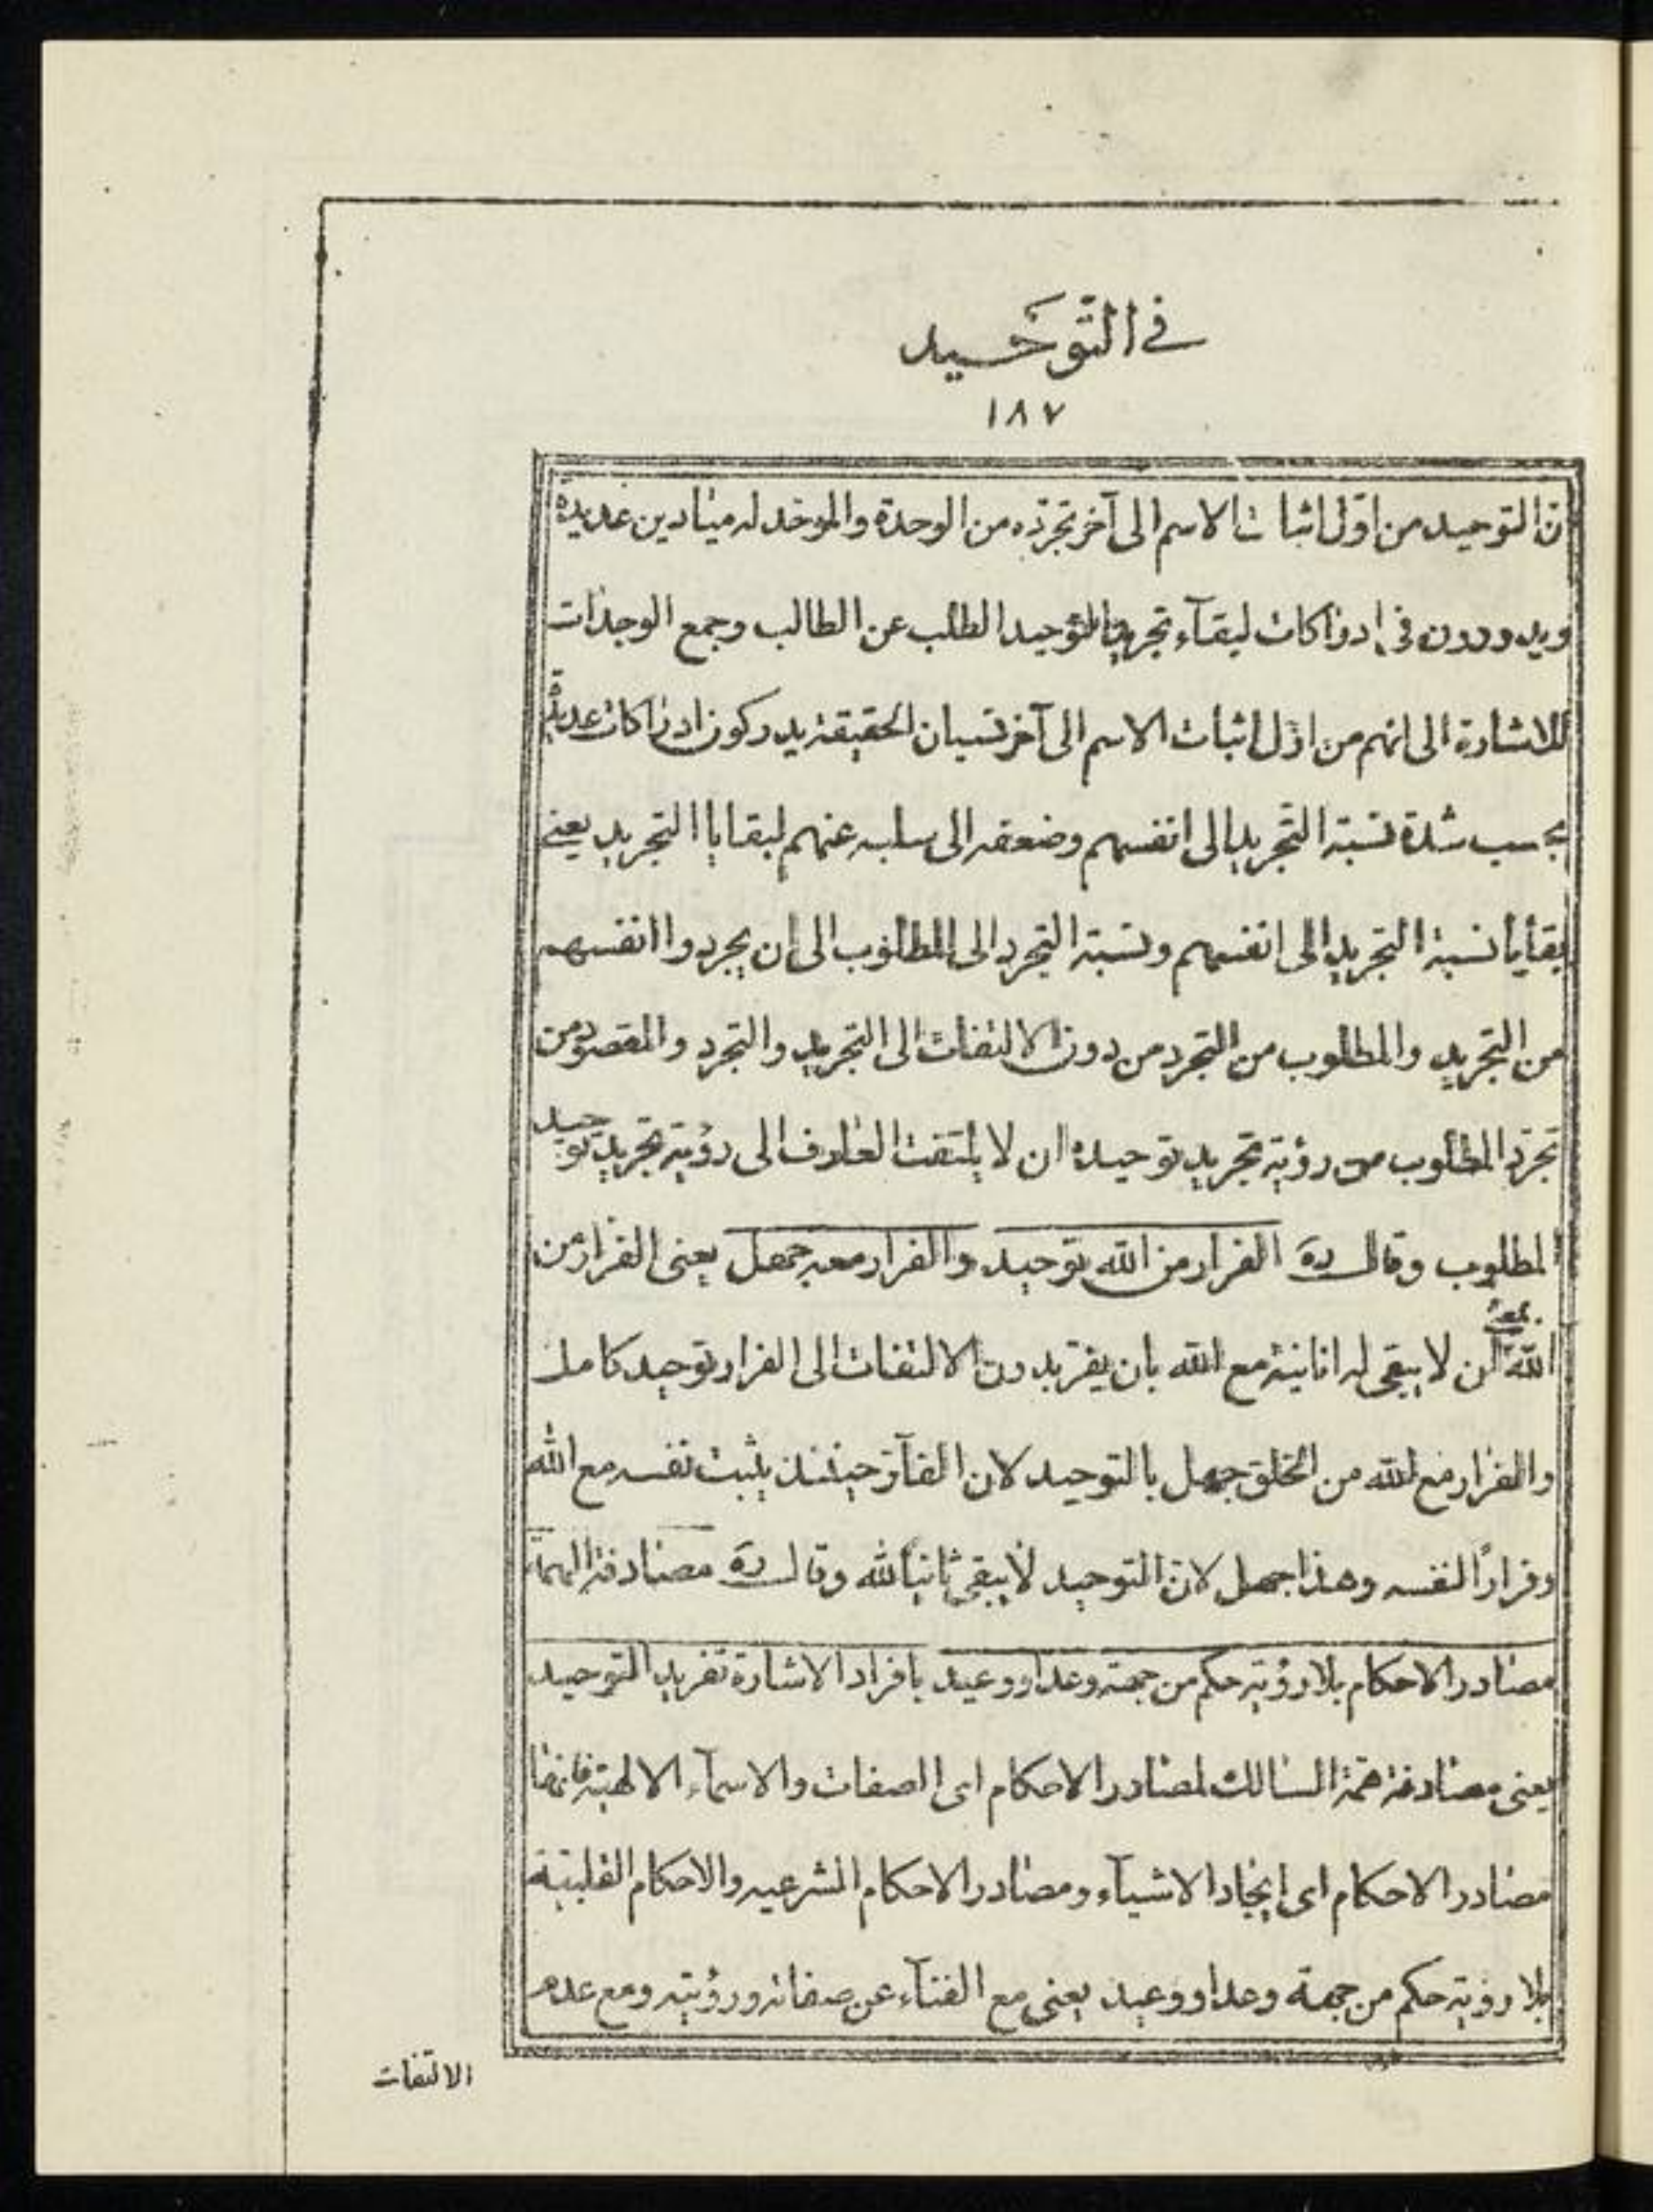 في التوحيد
١٨٧
ان التوحيد من اول اثبات الاسم الى آخر تجرده من الوحدة والموحد له ميادين عديدة
ويدورون في ادراكات لبقآء تجريد التوحيد الطلب عن الطالب وجمع الوجدات
للاشارة الى انهم من اول اثبات الاسم الى آخر نسيان الحقيقة يدركون ادراكات عديدة
بحسب شدة نسبة التجريد الى انفسهم وضعفه الى سلبه عنهم لبقايا التجريد يعنى
بقايا نسبة التجريد الى انفسهم ونسبة التجرد الى المطلوب الى ان يجردوا انفسهم
من التجريد والمطلوب من التجرد من دون الالتفات الى التجريد والتجرد والمقصود من
تجرد المطلوب من رؤية تجريد توحيده ان لا يلتفت العارف الى رؤية تجريد توحيد
المطلوب وقال ره الفرار من الله توحيد والفرار معه جهل يعنى الفرار من
الله بمعنى ان لا يبقى له انانية مع الله بان يفر بدون الالتفات الى الفرار توحيد كامل
والفرار مع الله من الخلق جهل بالتوحيد لان الفآر حينئذ يثبت نفسه مع الله
وفرارًا لنفسه وهذا جهل لان التوحيد لا يبقى ثانيًا لله وقال ره مصادفة الهمة
مصادر الاحكام بلا رؤية حكم من جهة وعد او وعيد بافراد الاشارة تفريد التوحيد
يعنى مصادفة همة السالك لمصادر الاحكام اى الصفات والاسمآء الالهية فانها
مصادر الاحكام اى ايجاد الاشيآء ومصادر الاحكام الشرعيه والاحكام القلبية
بلا رؤية حكم من جهة وعد او وعيد يعنى مع الفنآء عن صفاته ورؤيته ومع عدم
الالتفات